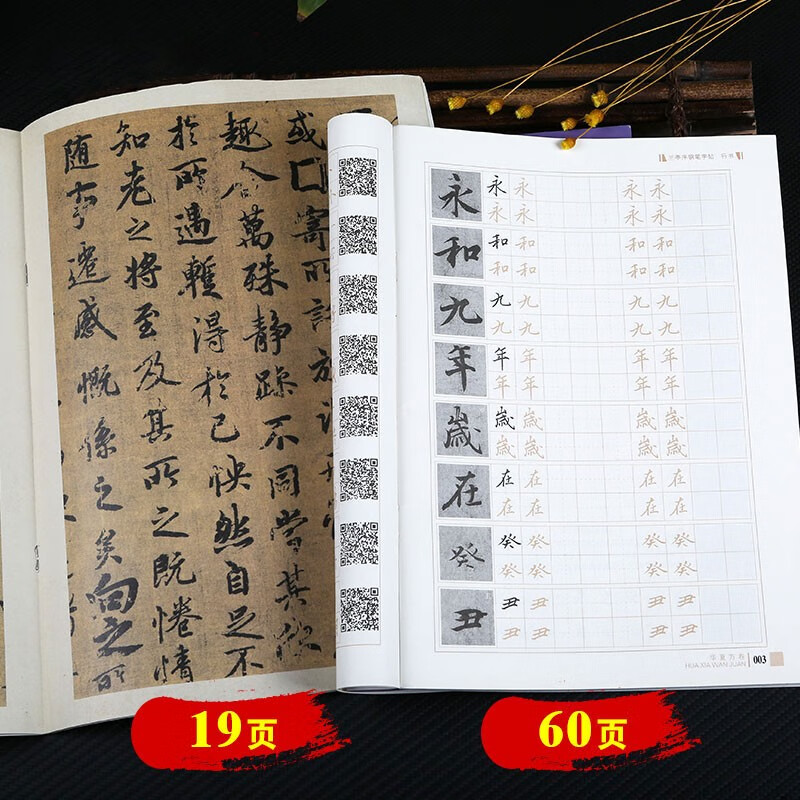 或因寄所託放
趣舍萬殊静躁不同當其欣
於所遇蹔得於己怏然自足不
知老之將至及其所之既惓情
随事遷感慨係之矣向之所
永 永 永 永 永
永 永 永
和 和 和 和 和
和 和 和
九 九 九 九 九
九 九 九
年 年 年 年 年
年 年 年
歲 歲 歲 歲 歲
歲 歲 歲
在 在 在 在 在
在 在 在
癸 癸 癸 癸 癸
癸 癸 癸
丑 丑 丑 丑 丑
丑 丑 丑
华夏万卷
HUA XIA WAN JUAN 003
19页
60页